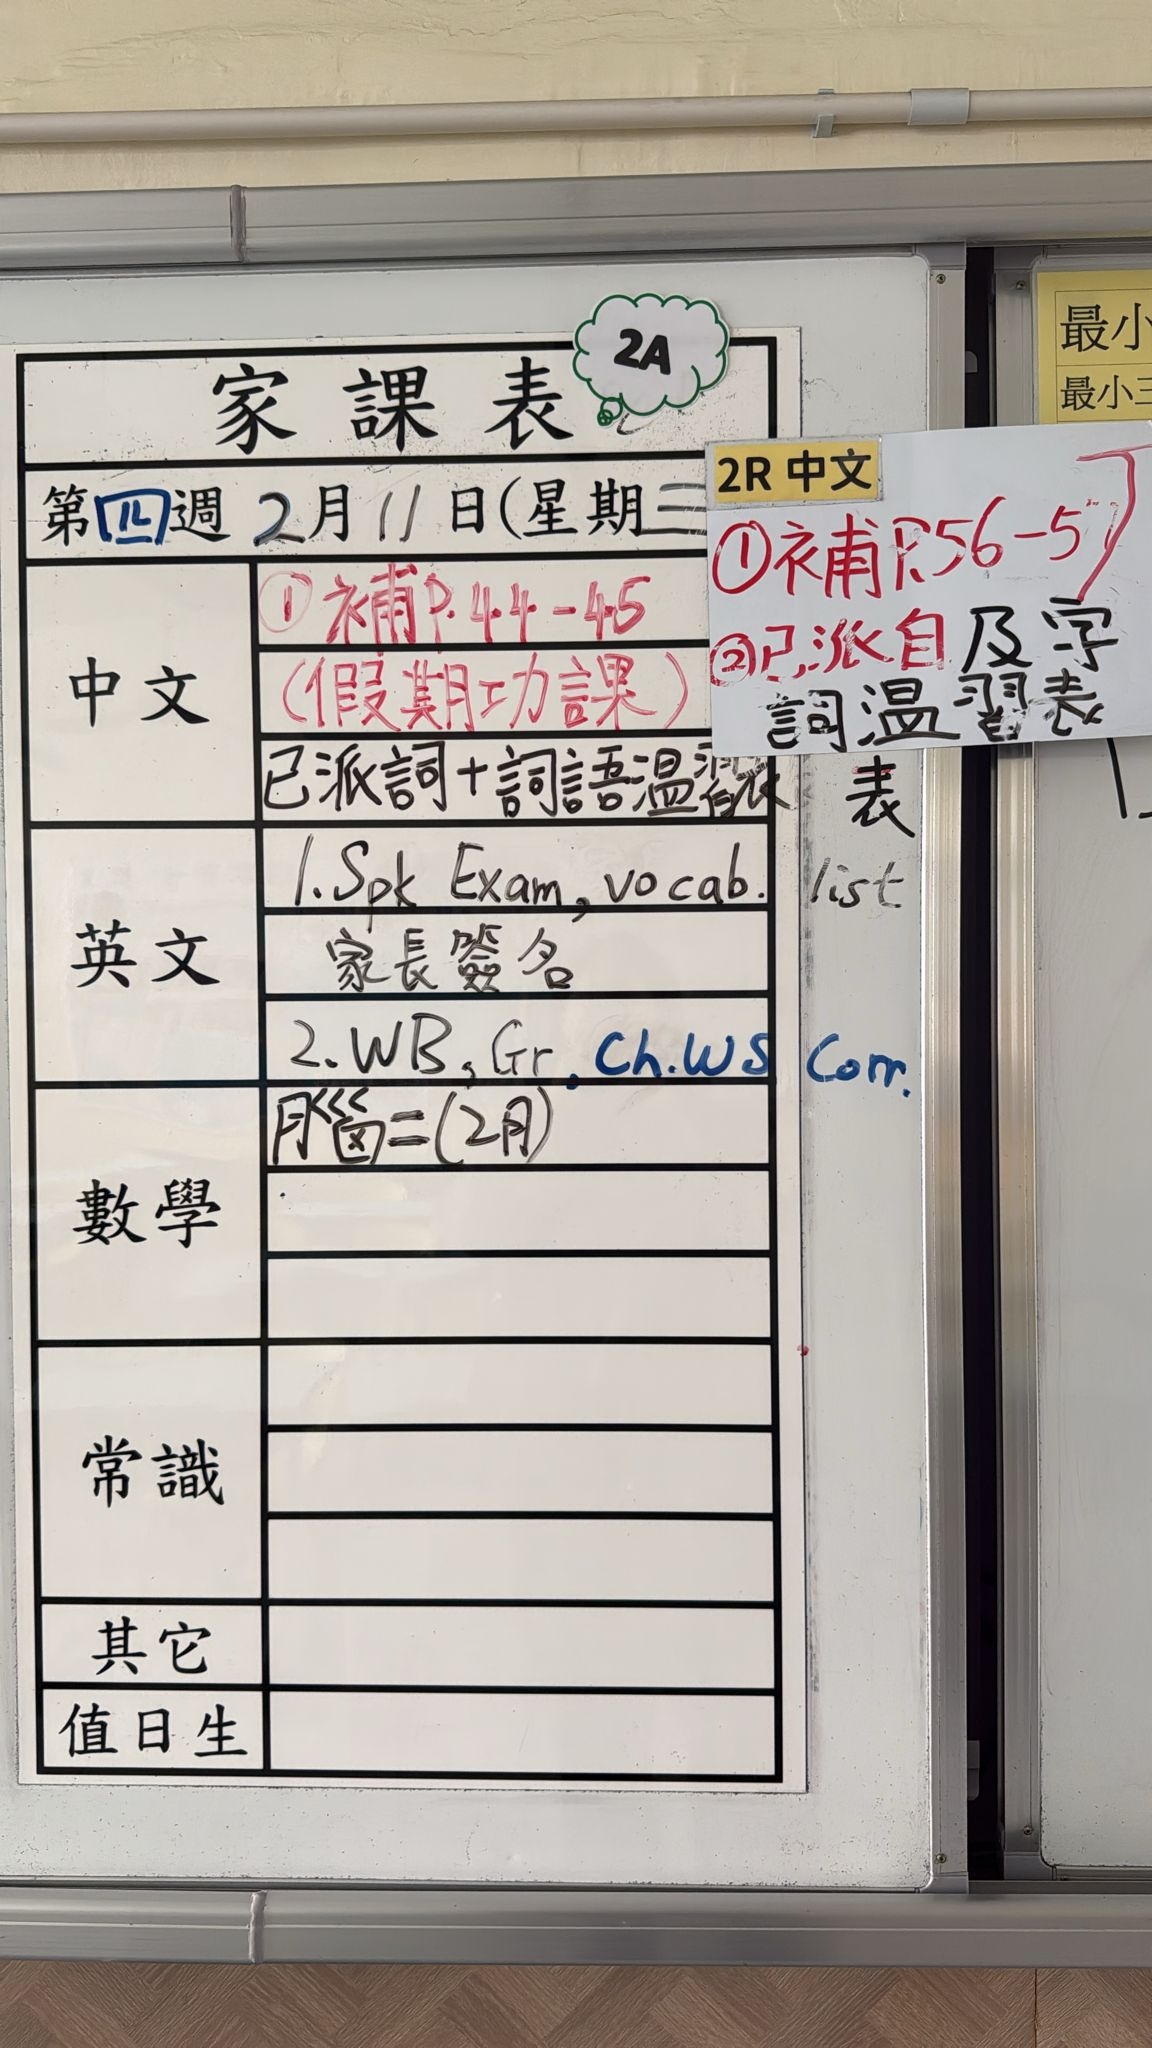 2A
家課表
第四週 2月11日(星期三
中文
①補P.44-45
(假期功課)
已派詞+詞語溫習表 表
英文
1.Spk Exam, vocab. list
家長簽名
2.WB, Gr, Ch.WS Corr.
數學
腦二(2月)
常識
其它
值日生
2R 中文
①補P.56-57
②已派自及字
詞溫習表
最小
最小三